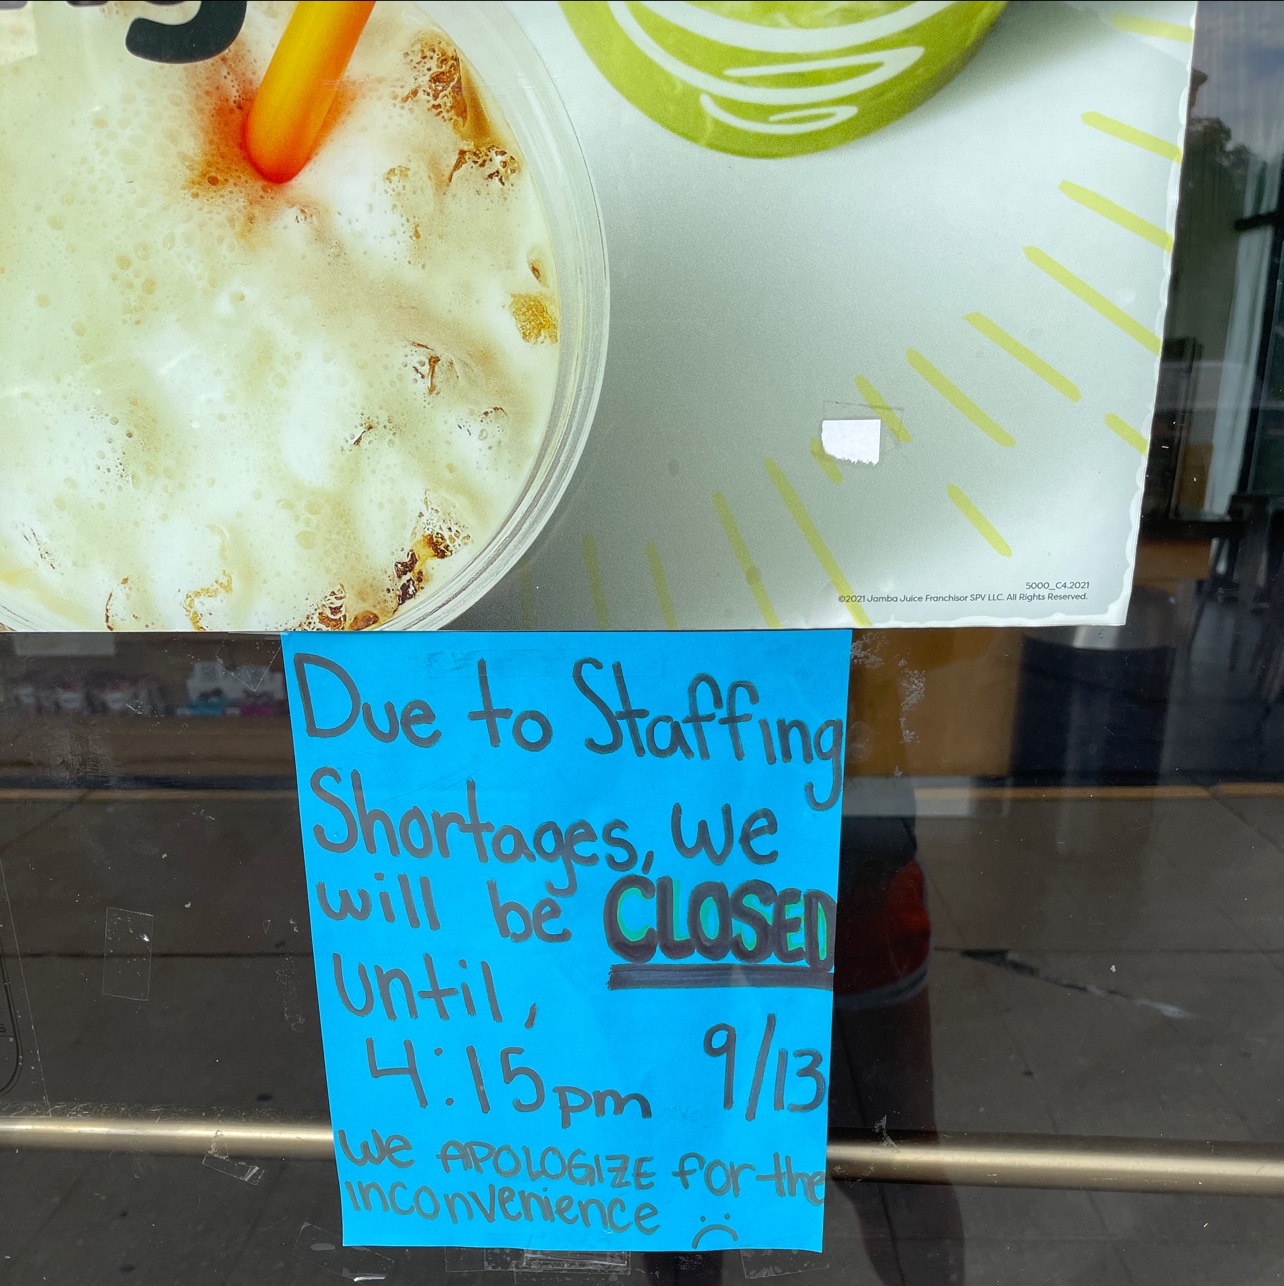 5000_C4.2021
©2021 Jamba Juice Franchisor SPV LLC. All Rights Reserved.
Due to Staffing
Shortages, we
will be CLOSED
until,
4:15pm 9/13
We APOLOGIZE for the
inconvenience :(